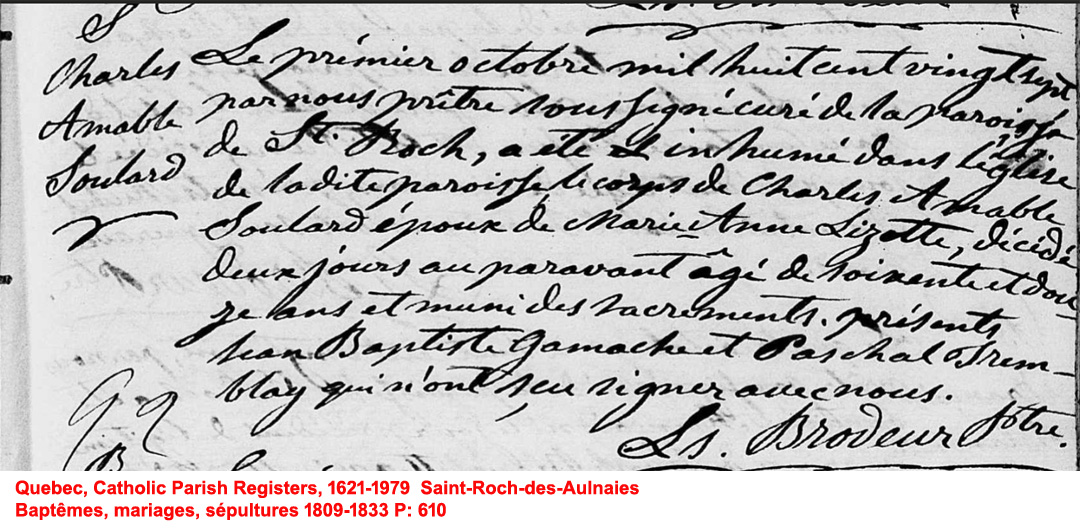 S
Charles
Amable
Soulard
Le prémier octobre mil huit cent vingt sept
par nous prêtre soussigné curé de la paroisse
de St. Roch, a été inhumé dans l'église
de ladite paroisse le corps de Charles Amable
Soulard époux de Marie Anne Lizotte, décédé
deux jours au paravant âgé de soixente et dou
ze ans et muni des sacrements. présents
Jean Baptiste Gamache et Paschal Trem-
blay qui n'ont sçu signer avec nous.
Ls. Brodeur Ptre.
Quebec, Catholic Parish Registers, 1621-1979 Saint-Roch-des-Aulnaies
Baptêmes, mariages, sépultures 1809-1833 P: 610